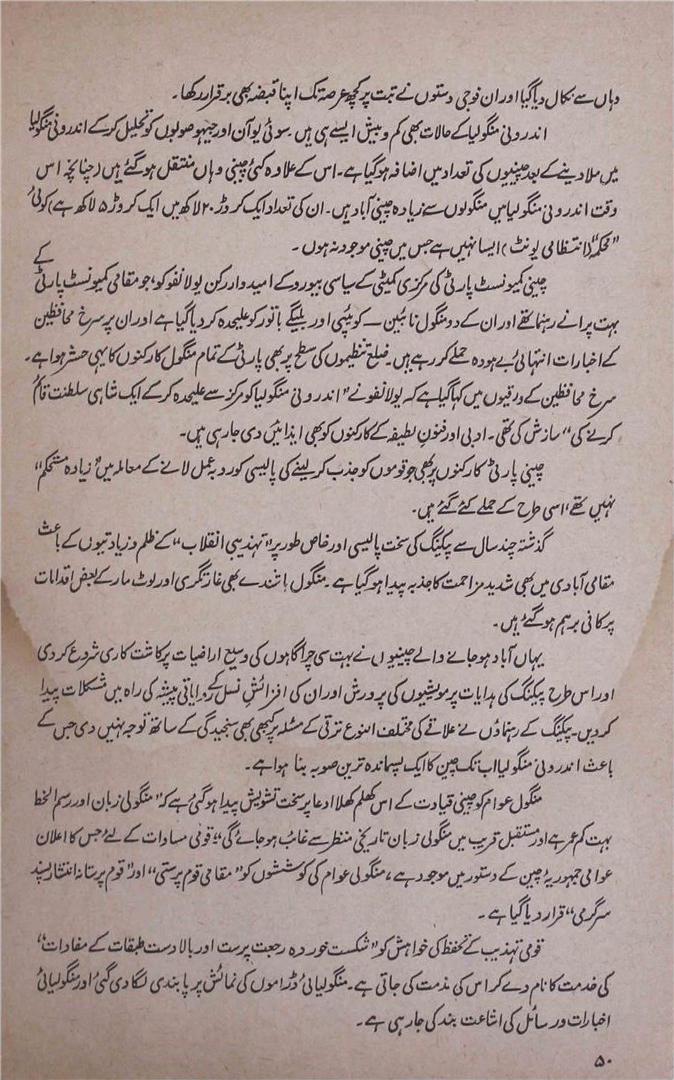 وہاں سے نکال دیا گیا اور ان فوجی دستوں نے تبت پر کچھ عرصہ تک اپنا قبضہ بھی برقرار رکھا۔
اندرونی منگولیا کے حالات بھی کم و بیش ایسے ہی ہیں۔ سوئی یوآن اور جیہو صوبوں کو تحلیل کر کے اندرونی منگولیا
میں ملا دینے کے بعد چینیوں کی تعداد میں اضافہ ہو گیا ہے۔ اس کے علاوہ کئی چینی وہاں منتقل ہو گئے ہیں (چنانچہ اس
وقت اندرونی منگولیا میں منگولوں سے زیادہ چینی آباد ہیں۔ ان کی تعداد ایک کروڑ ۲۰ لاکھ میں ایک کروڑ ۵ لاکھ ہے) کوئی
"محکمہ" (انتظامی یونٹ) ایسا نہیں ہے جس میں چینی موجود نہ ہوں۔
چینی کمیونسٹ پارٹی کی مرکزی کمیٹی کے سیاسی بیورو کے امیدوار رکن یولانفو کو، جو مقامی کمیونسٹ پارٹی کے
بہت پرانے رہنما تھے اور ان کے دو منگول نائبین — کویُپی اور یلیگے باتور کو علیحدہ کر دیا گیا ہے اور ان پر سرخ محافظین
کے اخبارات انتہائی بے ہودہ حملے کر رہے ہیں۔ ضلع تنظیموں کی سطح پر بھی پارٹی کے تمام منگول کارکنوں کا یہی حشر ہوا ہے۔
سرخ محافظین کے ورقیوں میں کہا گیا ہے کہ یولانفو نے "اندرونی منگولیا کو مرکز سے علیحدہ کر کے ایک شاہی سلطنت قائم
کرنے کی" سازش کی تھی۔ ادبی اور فنون لطیفہ کے کارکنوں کو بھی ایذائیں دی جا رہی ہیں۔
چینی پارٹی کارکنوں پر بھی جو قوموں کو جذب کر لینے کی پالیسی کو رو بہ عمل لانے کے معاملہ میں "زیادہ مستحکم"
نہیں تھے، اسی طرح کے حملے کئے گئے ہیں۔
گذشتہ چند سال سے پیکنگ کی سخت پالیسی اور خاص طور پر "تہذیبی انقلاب" کے ظلم و زیادتیوں کے باعث
مقامی آبادی میں بھی شدید مزاحمت کا جذبہ پیدا ہو گیا ہے۔ منگول باشندے بھی غارتگری اور لوٹ مار کے بعض اقدامات
پر کافی برہم ہو گئے ہیں۔
یہاں آباد ہو جانے والے چینیوں نے بہت سی چراگاہوں کی وسیع اراضیات پر کاشت کاری شروع کر دی
اور اس طرح پیکنگ کی ہدایات پر مویشیوں کی پرورش اور ان کی افزائش نسل کے روایاتی پیشہ کی راہ میں مشکلات پیدا
کر دیں۔ پیکنگ کے رہنماؤں نے علاقے کی مختلف النوع ترقی کے مسئلہ پر کبھی بھی سنجیدگی کے ساتھ توجہ نہیں دی جس کے
باعث اندرونی منگولیا اب تک چین کا ایک پسماندہ ترین صوبہ بنا ہوا ہے۔
منگول عوام کو چینی قیادت کے اس کھلم کھلا ادعا پر سخت تشویش پیدا ہو گئی ہے کہ "منگولی زبان اور رسم الخط
بہت کم عمر ہے اور مستقبل قریب میں منگولی زبان تاریخی منظر سے غائب ہو جائے گی" قومی مساوات کے لئے جس کا اعلان
عوامی جمہوریۂ چین کے دستور میں موجود ہے، منگولی عوام کی کوششوں کو "مقامی قوم پرستی" اور "قوم پرستانہ انتشار پسند
سرگرمی" قرار دیا گیا ہے۔
قومی تہذیب کے تحفظ کی خواہش کو "شکست خوردہ رجعت پرست اور بالا دست طبقات کے مفادات"
کی خدمت کا نام دے کر اس کی مذمت کی جاتی ہے۔ منگولیائی ڈراموں کی نمائش پر پابندی لگا دی گئی اور منگولیائی
اخبارات و رسائل کی اشاعت بند کی جا رہی ہے۔
۵۰